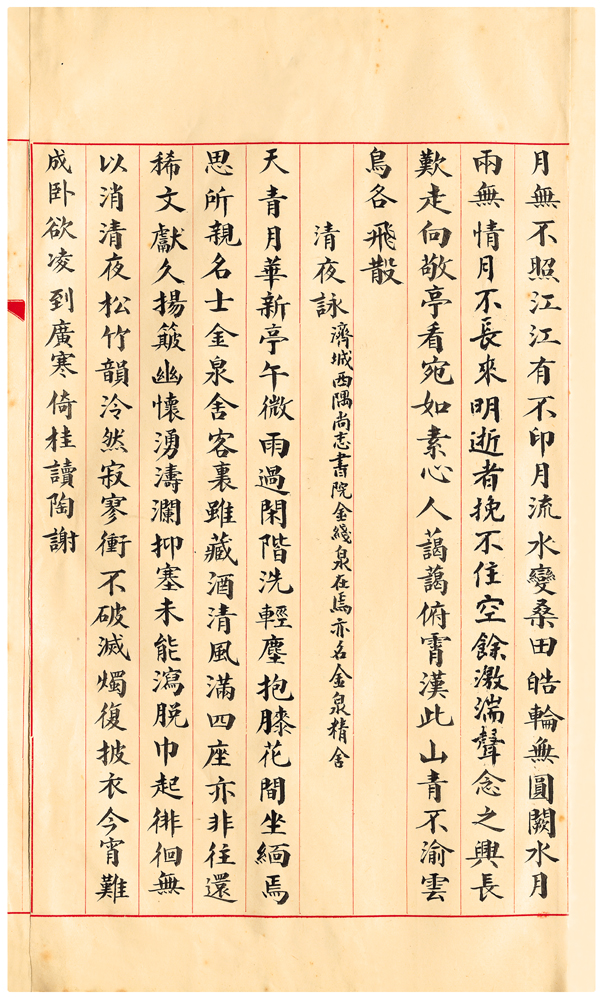 月無不照江江有不印月流水變桑田皓輪無圓闕水月
雨無情月不長來明逝者挽不住空餘激湍聲念之興長
歎走向敬亭看宛如素心人藹藹俯霄漢此山青不渝雲
鳥各飛散
清夜詠濟城西隅尚志書院金綫泉在焉亦名金泉精舍
天青月華新亭午微雨過閑階洗輕塵抱膝花間坐緬焉
思所親名士金泉舍客裏雖藏酒清風滿四座亦非往還
稀文獻久揚簸幽懷湧濤瀾抑塞未能瀉脱巾起徘徊無
以消清夜松竹韻泠然寂寥衝不破滅燭復披衣今宵難
成卧欲凌到廣寒倚桂讀陶謝